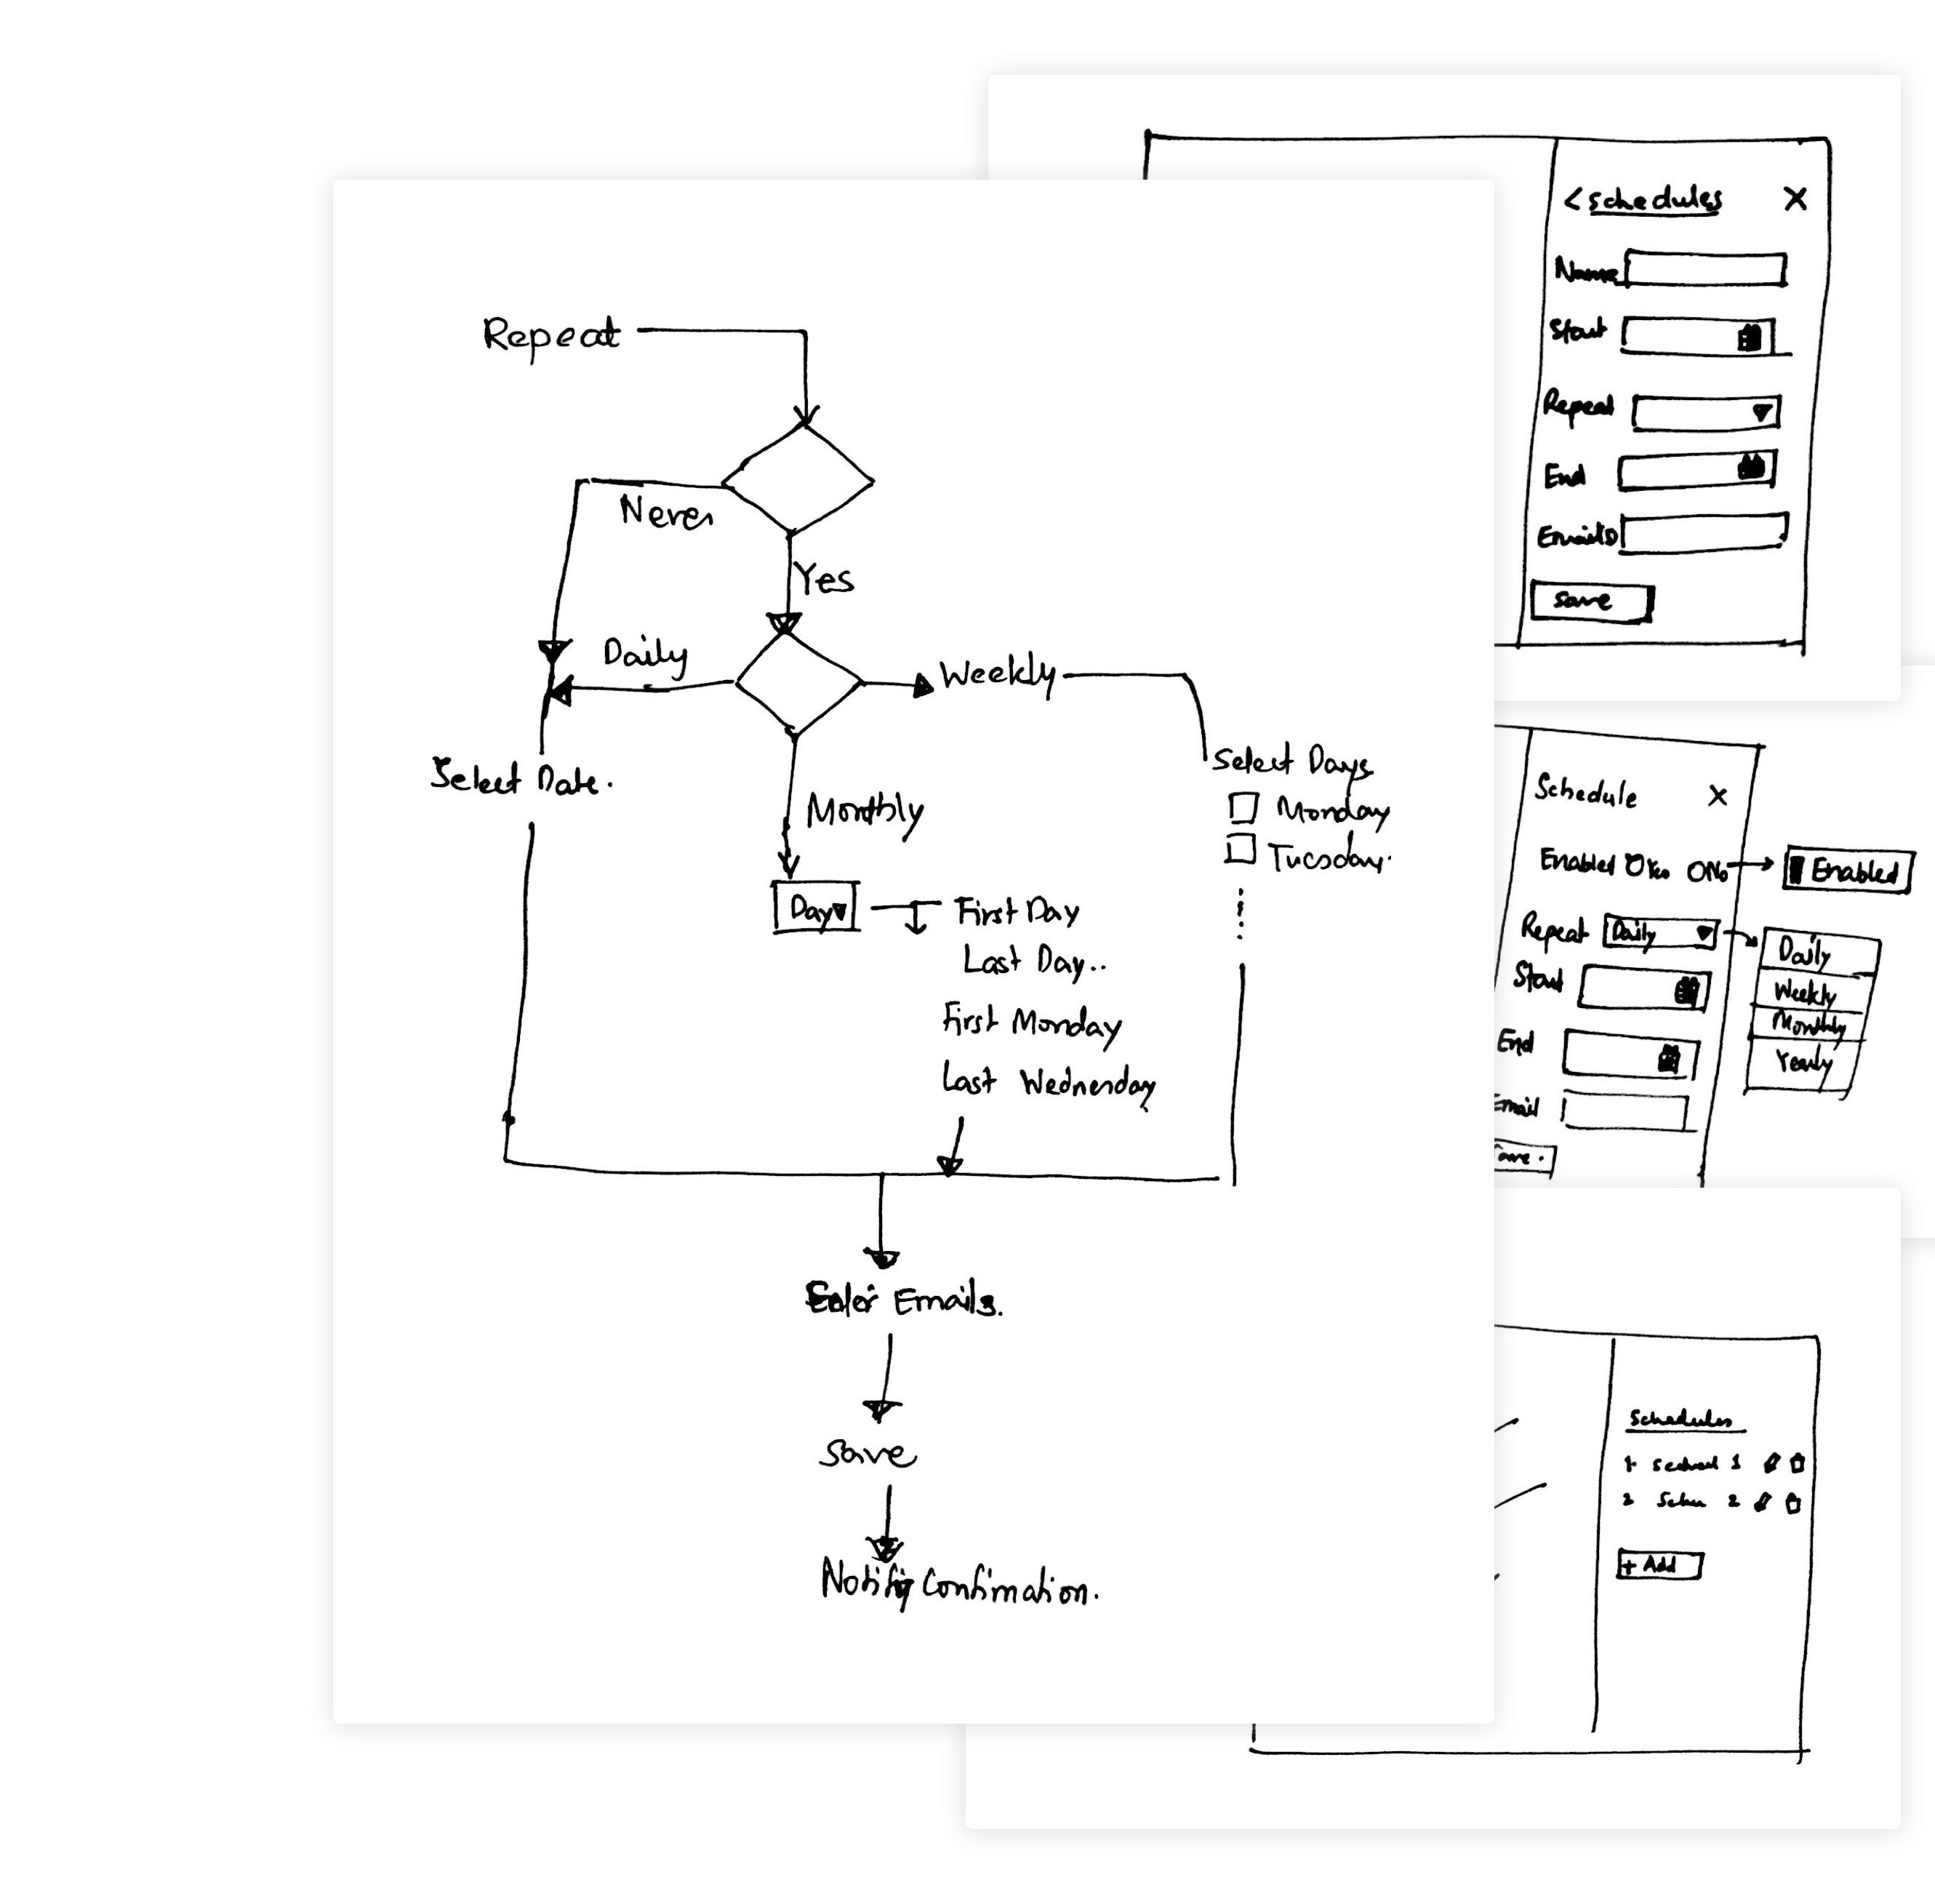 Repeat
Never
Yes
Daily
Weekly
Select Date.
Monthly
Select Days
Monday
Tuesday.
Day
First Day
Last Day..
First Monday
Last Wednesday
Enter Emails.
Save
Notify Confimation.
< Schedules X
Name
Start
Repeat
End
Emails
Save
Schedule X
Enabled Yes No
Enabled
Repeat Daily
Daily
Weekly
Monthly
Yearly
Start
End
Email
Schedules
1
2
+ Add